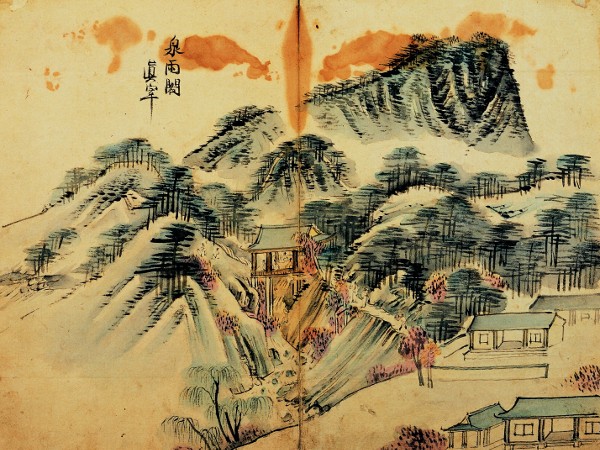 泉雨閣
眞宰